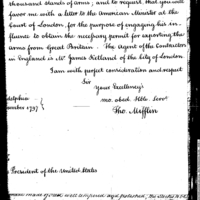 thousand stands of arms; and to request, that you will
favor me with a letter to the American Minister at the
Court of London, for the purpose of engaging his in-
fluence to obtain the necessary permit for exporting the
arms from Great Britain. The Agent of the Contractors
in England is Mr. James Ketland of the City of London.
I am with perfect consideration and respect
Sir
Your Excellency's
mo. obed. Hble Serv.
Tho. Mifflin
delphia
ember 1797
President of the United States